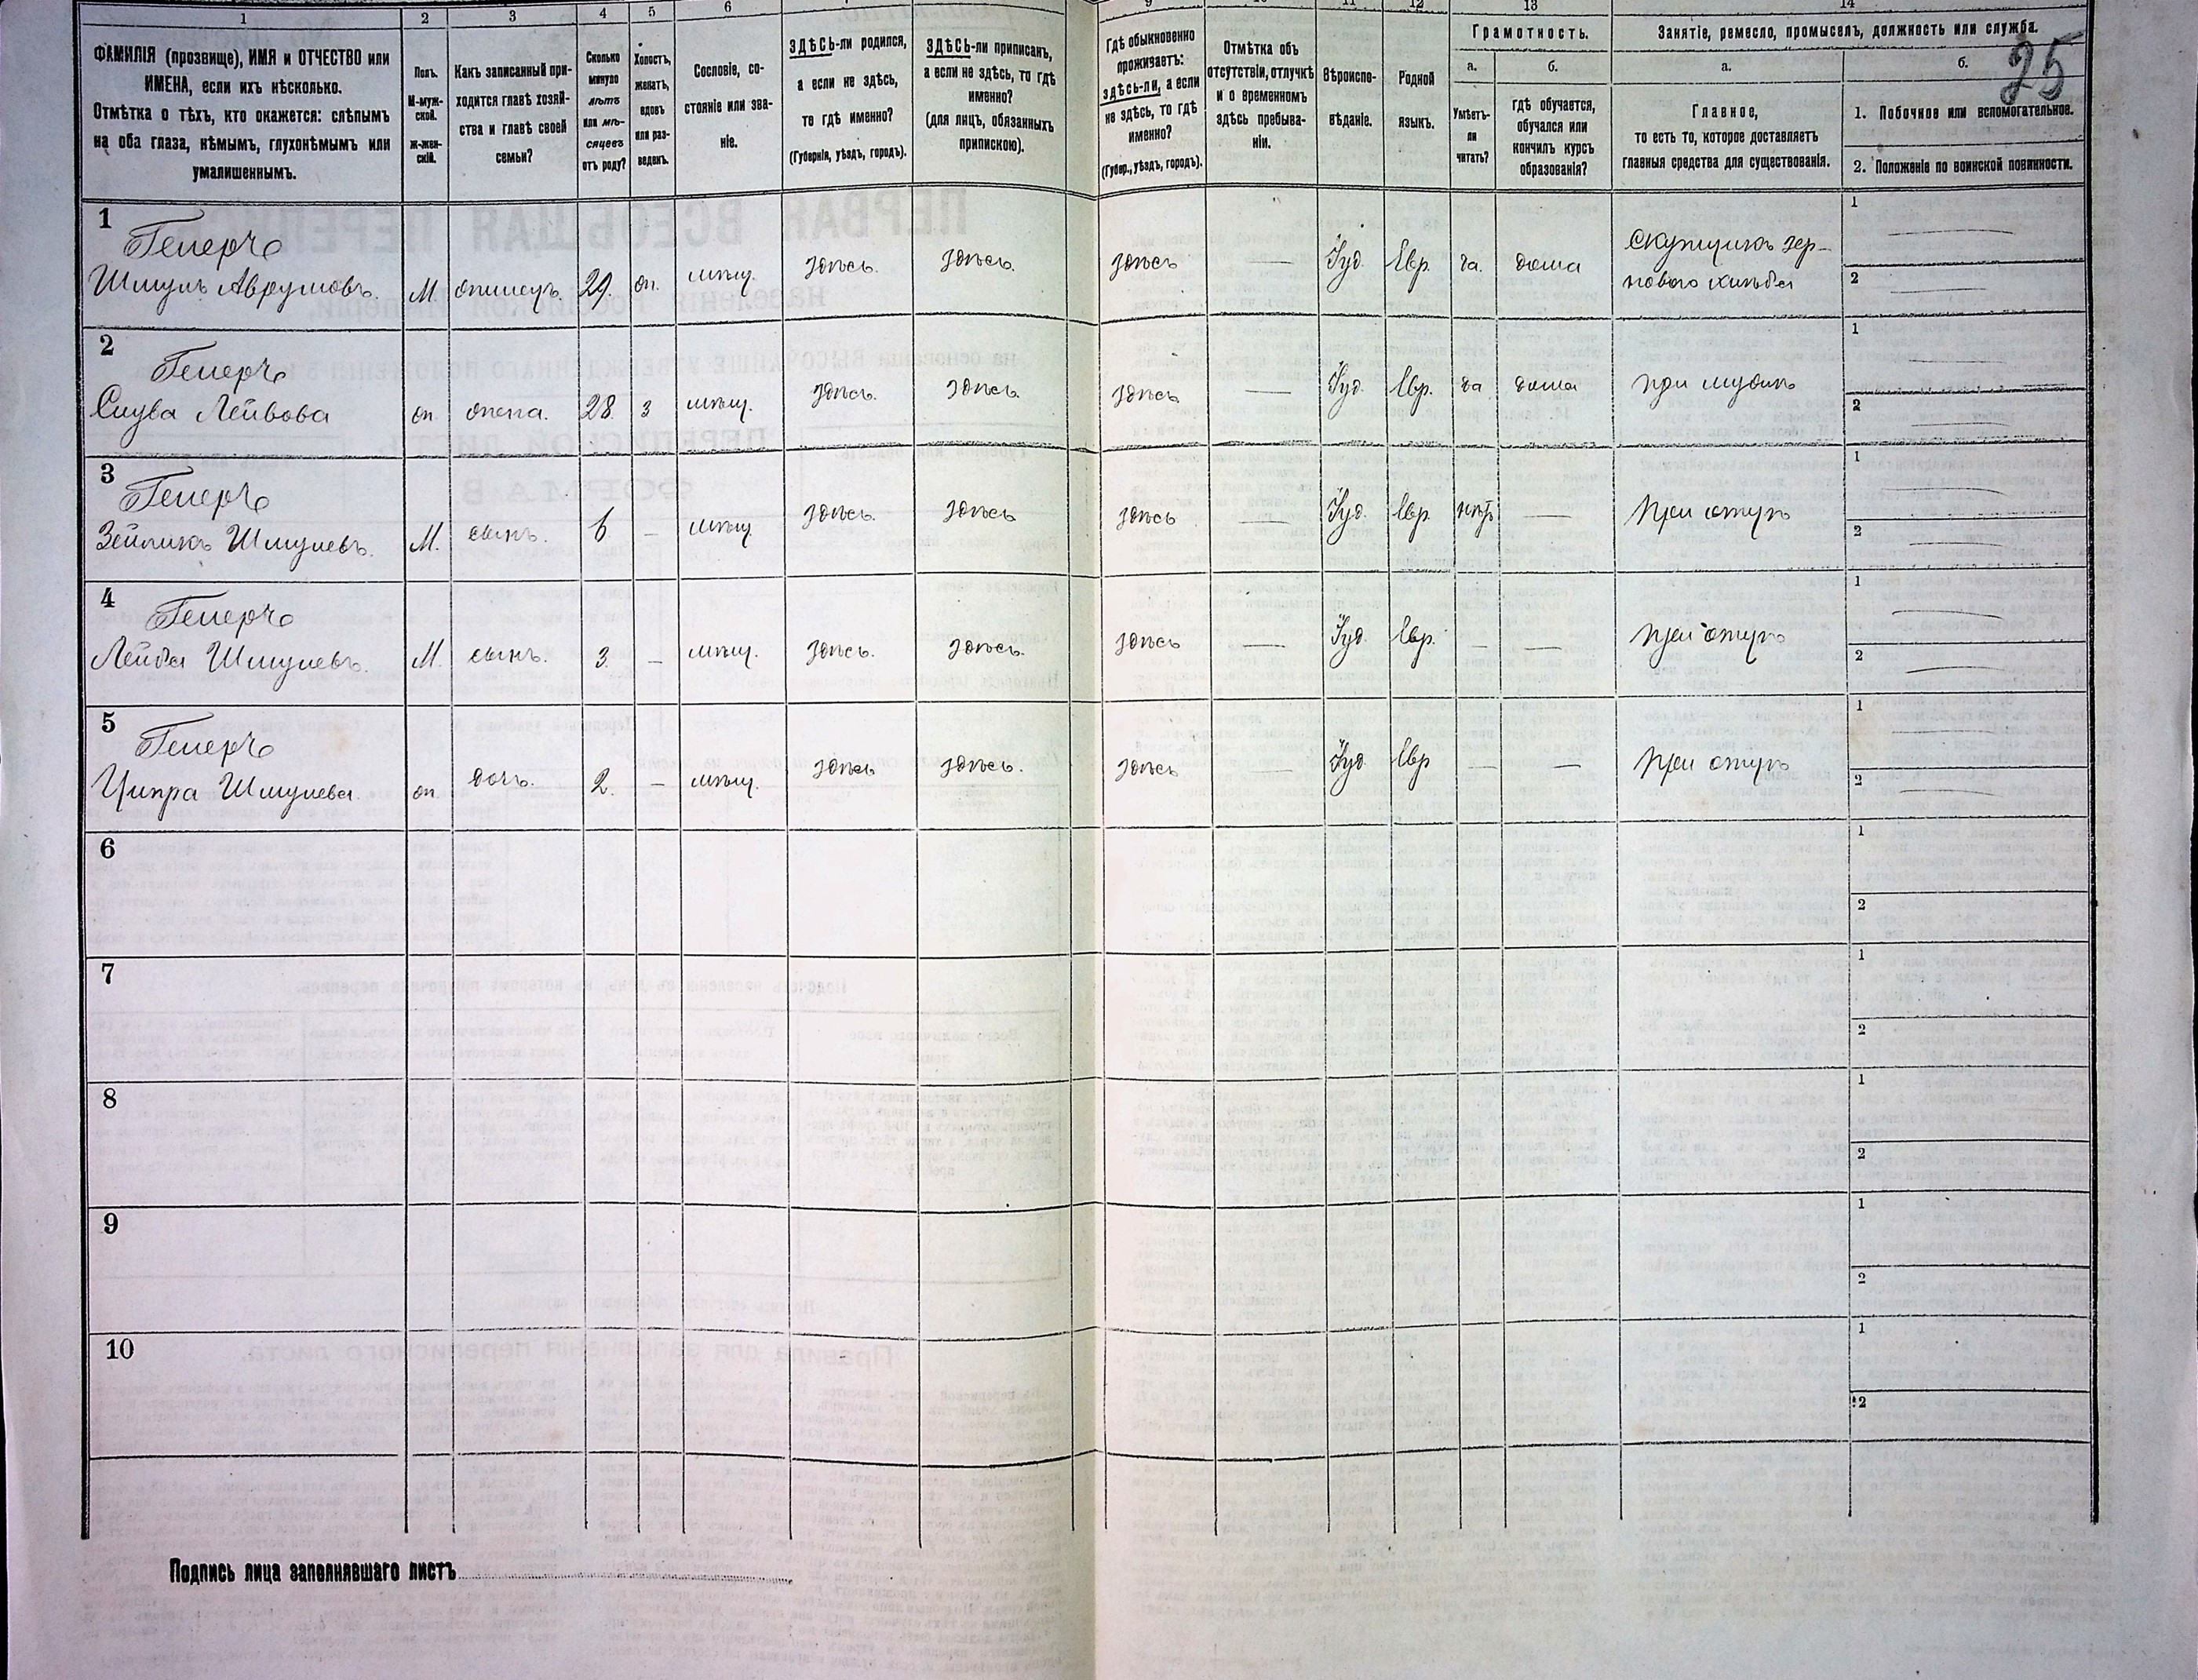 1 2 3 4 5 6
ФАМИЛІЯ (прозвище), ИМЯ и ОТЧЕСТВО или
ИМЕНА, если ихъ нѣсколько.
Отмѣтка о тѣхъ, кто окажется: слѣпымъ
на оба глаза, нѣмымъ, глухонѣмымъ или
умалишеннымъ.
Полъ.
М-муж-
ской.
ж-жен-
скій.
Какъ записанный при-
ходится главѣ хозяй-
ства и главѣ своей
семьи?
Сколько
минуло
лѣтъ
или мѣ-
сяцевъ
отъ роду?
Холостъ,
женатъ,
вдовъ
или раз-
веденъ.
Сословіе, со-
стояніе или зва-
ніе.
ЗДѢСЬ-ли родился,
а если не здѣсь,
то гдѣ именно?
(Губернія, уѣздъ, городъ).
ЗДѢСЬ-ли приписанъ,
а если не здѣсь, то гдѣ
именно?
(для лицъ, обязанныхъ
припискою).
9 10 11 12 13 14
Гдѣ обыкновенно
проживаетъ:
здѣсь-ли, а если
не здѣсь, то гдѣ
именно?
(Губер., уѣздъ, городъ).
Отмѣтка объ
отсутствіи, отлучкѣ
и о временномъ
здѣсь пребыва-
ніи.
Вѣроиспо-
вѣданіе.
Родной
языкъ.
Грамотность.
а.
Умѣетъ-
ли
читать?
б.
гдѣ обучается,
обучался или
кончилъ курсъ
образованія?
Занятіе, ремесло, промыселъ, должность или служба.
а.
Главное,
то есть то, которое доставляетъ
главныя средства для существованія.
б.
25
1. Побочное или вспомогательное.
2. Положеніе по воинской повинности.
1
Гелерѣ
Шмуль Аврумовъ. М. 29. мѣщ. здѣсь. здѣсь. здѣсь — Іуд. Евр. да. дома
Скупщикъ зер-
нового хлѣба
1 —
2 —
2
Гелерѣ
Слува Лейбова 28. з мѣщ. здѣсь. здѣсь. здѣсь — Іуд. Евр. да дома при мужѣ
1 —
2 —
3
Гелерѣ
Зейликъ Шмулевъ. М. сынъ. 6 — мѣщ. здѣсь. здѣсь здѣсь — Іуд. Евр. нѣтъ — при отцѣ
1 —
2 —
4
Гелерѣ
Лейба Шмулевъ. М. сынъ. 3. — мѣщ. здѣсь. здѣсь. здѣсь — Іуд. Евр. — — при отцѣ
1 —
2 —
5
Гелерѣ
Ципра Шмулева. дочь. 2. — мѣщ. здѣсь здѣсь. здѣсь — Іуд. Евр — — при отцѣ
1 —
2 —
6
1
2
7
1
2
8
1
2
9
1
2
10
1
2
Подпись лица заполнявшаго листъ